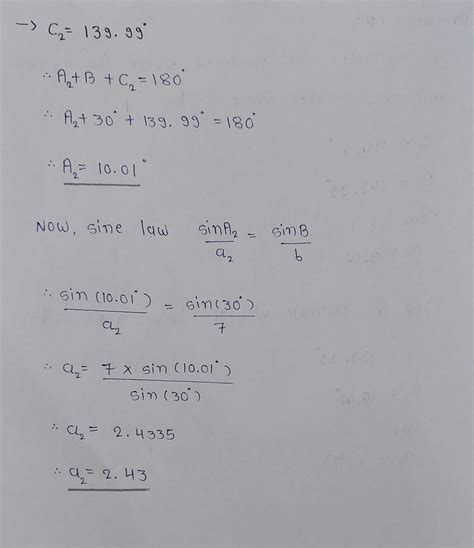 → C₂= 139.99°
∴ A₂+B + C₂=180°
∴ A₂+ 30° + 139. 99° =180°
∴ A₂= 10.01°
NOW, sine law sinA₂/a₂ = sinB/b
∴ sin (10.01°)/a₂ = sin(30°)/7
∴ a₂= 7 × sin (10.01°)/sin (30°)
∴ a₂= 2.4335
∴ a₂= 2.43